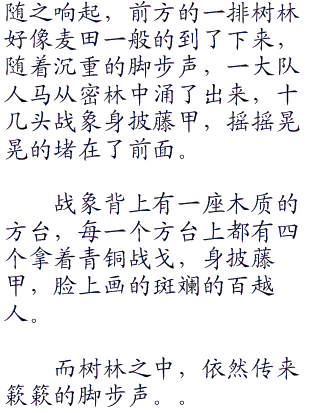 随之响起，前方的一排树林
好像麦田一般的到了下来，
随着沉重的脚步声，一大队
人马从密林中涌了出来，十
几头战象身披藤甲，摇摇晃
晃的堵在了前面。
战象背上有一座木质的
方台，每一个方台上都有四
个拿着青铜战戈，身披藤
甲，脸上画的斑斓的百越
人。
而树林之中，依然传来
簌簌的脚步声。。